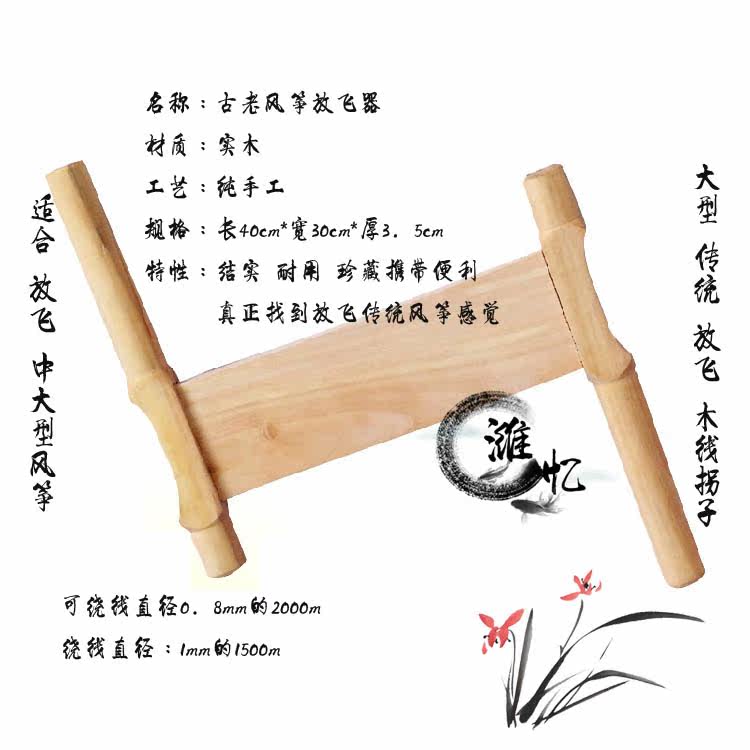 名称：古老风筝放飞器
材质：实木
工艺：纯手工
规格：长40cm*宽30cm*厚3. 5cm
特性：结实 耐用 珍藏携带便利
真正找到放飞传统风筝感觉
适合 放飞 中大型风筝
大型 传统 放飞 木线拐子
潍忆
可绕线直径0. 8mm的2000m
绕线直径：1mm的1500m